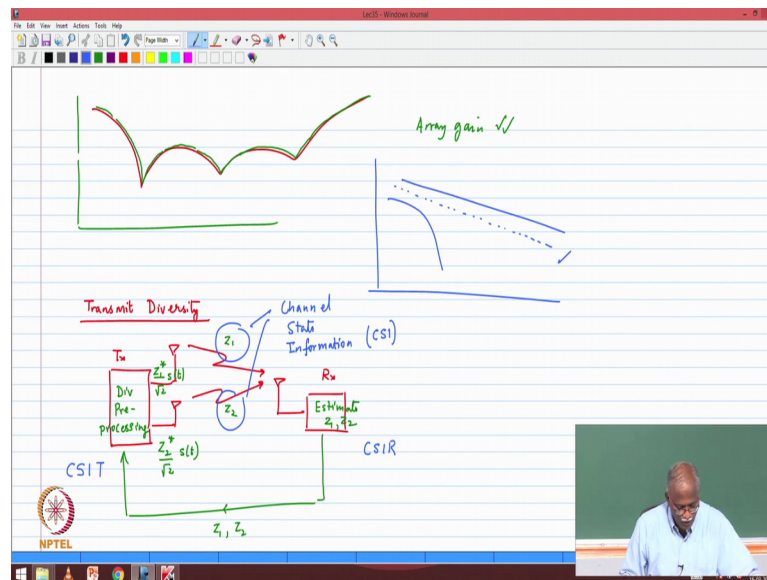 Lec35 - Windows Journal
File Edit View Insert Actions Tools Help
Page Width
B I
Array gain ✓✓
Transmit Diversity
Channel
State
Information (CSI)
Tx
Div
Pre-
processing
Z1* s(t)
√2
Z2* s(t)
√2
Z1
Z2
Rx
Estimate
Z1, Z2
CSIT
CSIR
Z1, Z2
NPTEL